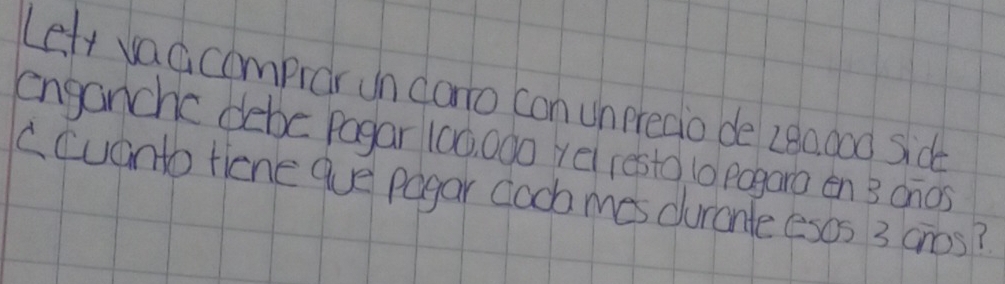 Lety va a comprar un carro con un precio de 280,000 si de
enganche debe pagar 100,000 y el resto lo pagara en 3 años
¿Cuanto tiene que pagar cada mes durante esos 3 años?